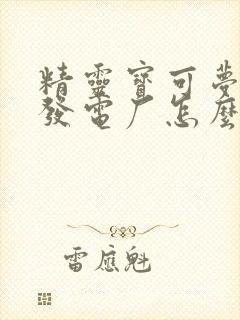 精靈寶可夢
發電厂怎麼
雷應魁